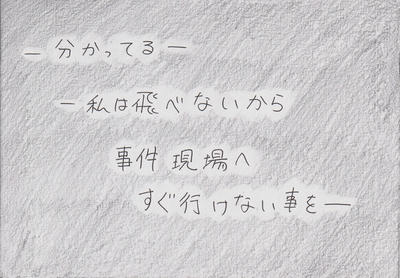 ― 分かってる ―
― 私は飛べないから
事件現場へ
すぐ行けない事を―